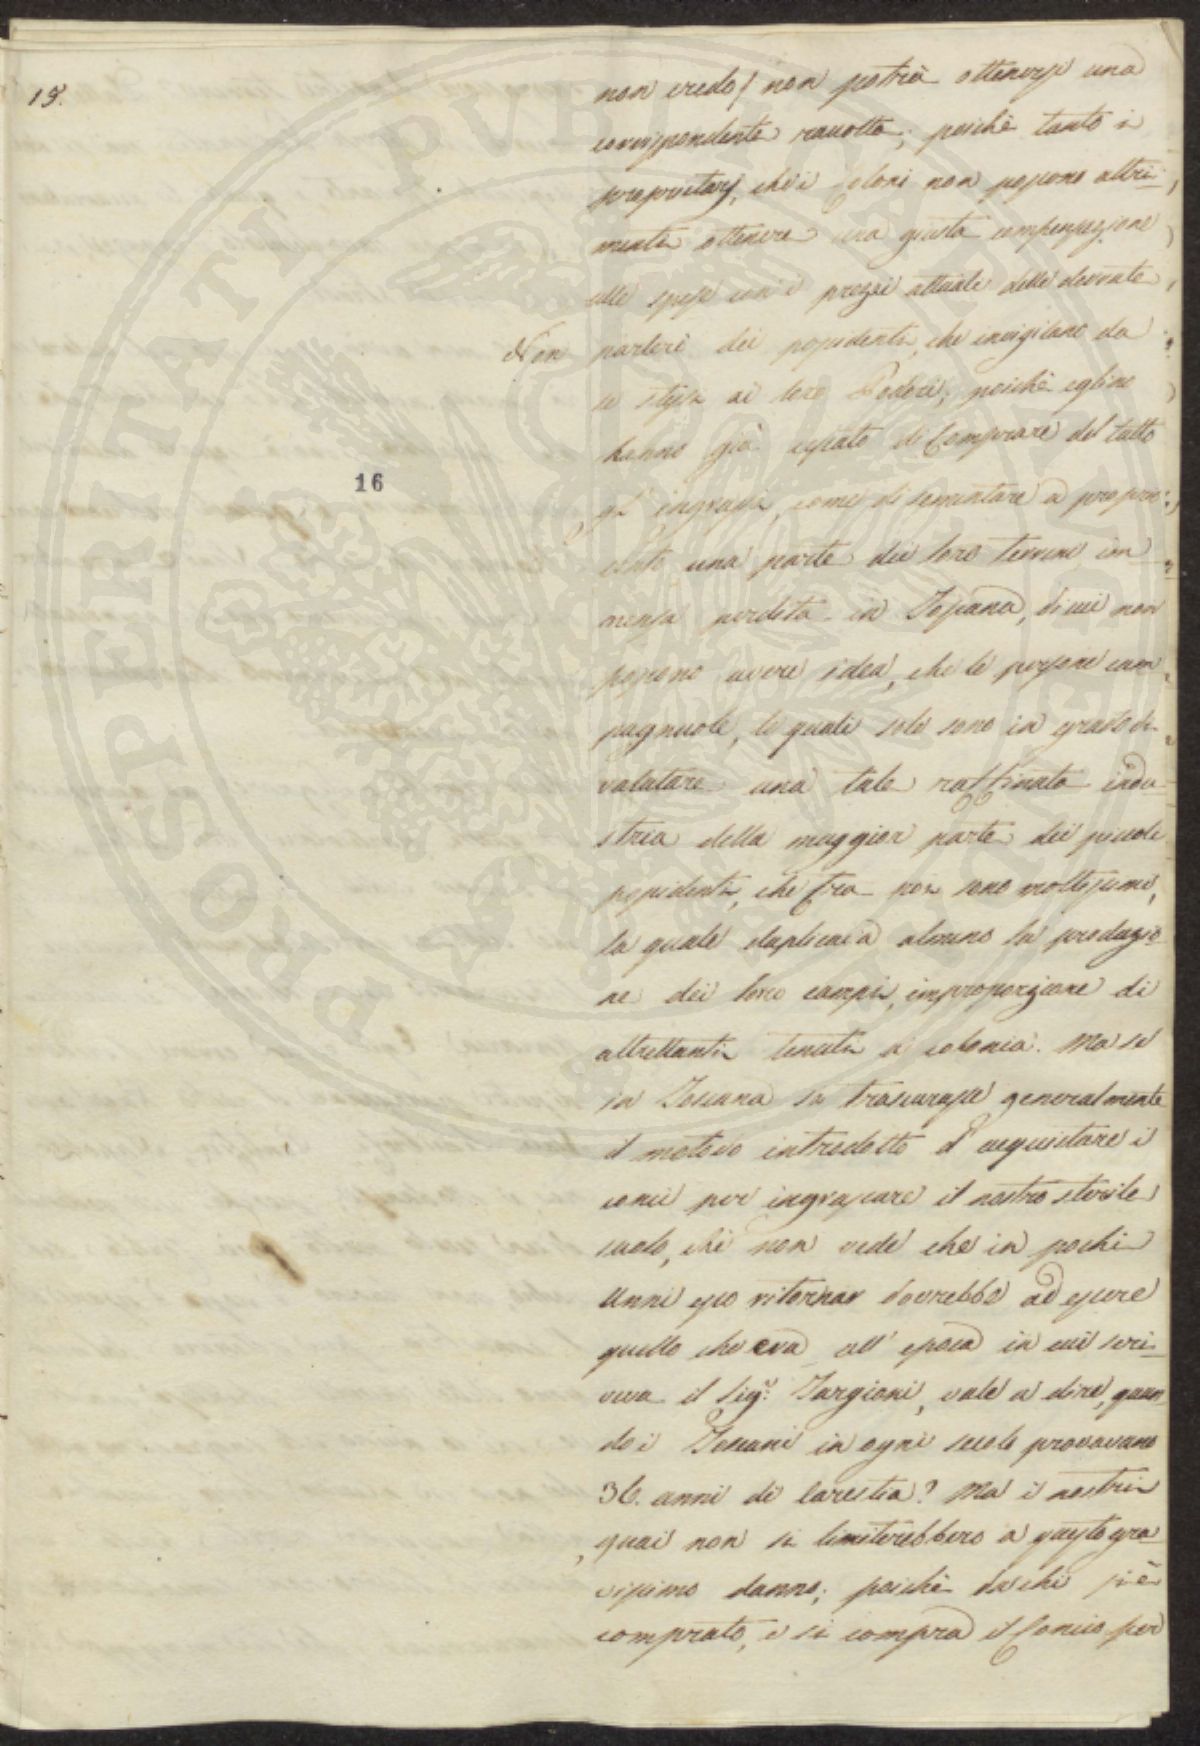 15.
non credo/ non potrà ottenersi una
corrispondente raccolta; poichè tanto i
proprietarj, che i Coloni non possono altri-
menti ottenere una giusta compensazione
alle spese con i prezzi attuali delle derrate
Non parlerò dei possidenti, che invigilano da
se stessi ai loro Poderi; poichè eglino
hanno già cessato di Comprare del tutto
gl' ingrassi, come di sementare a proprio
conto una parte dei loro terreni im-
mensa perdita in Toscana, di cui non
possono avere idea, che le persone cam-
pagnuole, le quali sole sono in grado di
valutare una tale raffinata indu-
stria della maggior parte dei piccoli
possidenti, che tra noi sono moltissimi,
la quale duplicava almeno la produzio-
ne dei loro campi, in proporzione di
altrettanti tenuti a colonia. Ma se
in Toscana si trascurasse generalmente
il metodo introdotto d' acquistare i
conci per ingrassare il nostro sterile
suolo, chi non vede che in pochi
Anni esso ritornar dovrebbe ad essere
quello che era all' epoca in cui scri-
veva il Sigr. Targioni, vale a dire, quan-
do i Toscani in ogni secolo provavano
36. anni di Carestia? Ma i nostri
guai non si limiterebbero a questo gra-
vissimo danno; poichè da chi si è
comprato, e si compra il Concio per
16
PROSPERITATI PVBLICAE AVGENDAE